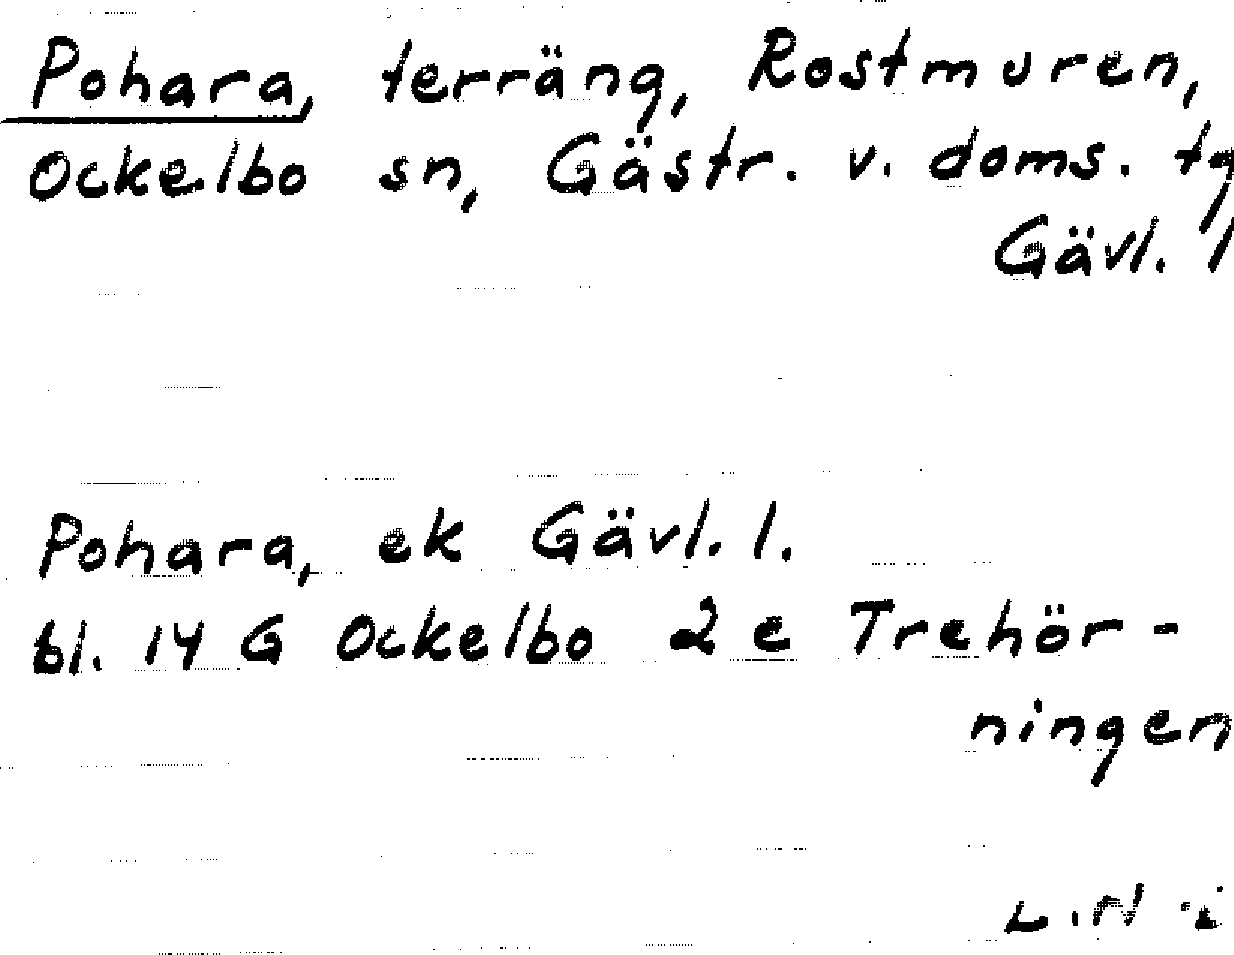 Pohara, terräng, Rostmuren,
Ockelbo sn, Gästr. v. doms. tg
Gävl. l
Pohara, ek Gävl. l.
bl. 14 G Ockelbo 2 e Trehör-
ningen